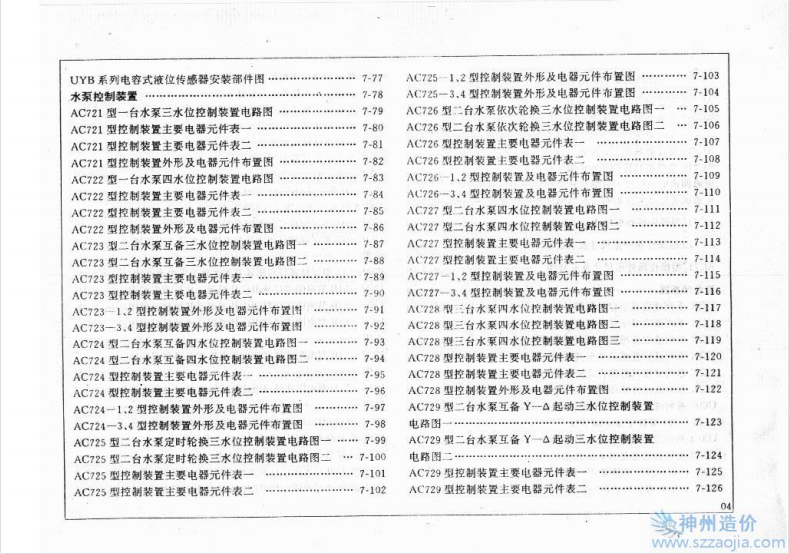 UYB 系列电容式液位传感器安装部件图 ………………… 7-77
水泵控制装置 ………………… 7-78
AC721 型一台水泵三水位控制装置电路图 ………………… 7-79
AC721 型控制装置主要电器元件表一 ………………… 7-80
AC721 型控制装置主要电器元件表二 ………………… 7-81
AC721 型控制装置外形及电器元件布置图 ………………… 7-82
AC722 型一台水泵四水位控制装置电路图 ………………… 7-83
AC722 型控制装置主要电器元件表一 ………………… 7-84
AC722 型控制装置主要电器元件表二 ………………… 7-85
AC722 型控制装置外形及电器元件布置图 ………………… 7-86
AC723 型二台水泵互备三水位控制装置电路图一 ………… 7-87
AC723 型二台水泵互备三水位控制装置电路图二 ………… 7-88
AC723 型控制装置主要电器元件表一 ………………… 7-89
AC723 型控制装置主要电器元件表二 ………………… 7-90
AC723—1、2 型控制装置外形及电器元件布置图 ………… 7-91
AC723—3、4 型控制装置外形及电器元件布置图 ………… 7-92
AC724 型二台水泵互备四水位控制装置电路图一 ………… 7-93
AC724 型二台水泵互备四水位控制装置电路图二 ………… 7-94
AC724 型控制装置主要电器元件表一 ………………… 7-95
AC724 型控制装置主要电器元件表二 ………………… 7-96
AC724—1、2 型控制装置外形及电器元件布置图 ………… 7-97
AC724—3、4 型控制装置外形及电器元件布置图 ………… 7-98
AC725 型二台水泵定时轮换三水位控制装置电路图一 …… 7-99
AC725 型二台水泵定时轮换三水位控制装置电路图二 … 7-100
AC725 型控制装置主要电器元件表一 ………………… 7-101
AC725 型控制装置主要电器元件表二 ………………… 7-102
AC725—1、2 型控制装置外形及电器元件布置图 ………… 7-103
AC725—3、4 型控制装置外形及电器元件布置图 ………… 7-104
AC726 型二台水泵依次轮换三水位控制装置电路图一 … 7-105
AC726 型二台水泵依次轮换三水位控制装置电路图二 … 7-106
AC726 型控制装置主要电器元件表一 ………………… 7-107
AC726 型控制装置主要电器元件表二 ………………… 7-108
AC726—1、2 型控制装置及电器元件布置图 ………… 7-109
AC726—3、4 型控制装置及电器元件布置图 ………… 7-110
AC727 型二台水泵四水位控制装置电路图一 ………… 7-111
AC727 型二台水泵四水位控制装置电路图二 ………… 7-112
AC727 型控制装置主要电器元件表一 ………………… 7-113
AC727 型控制装置主要电器元件表二 ………………… 7-114
AC727—1、2 型控制装置及电器元件布置图 ………… 7-115
AC727—3、4 型控制装置及电器元件布置图 ………… 7-116
AC728 型三台水泵四水位控制装置电路图一 ………… 7-117
AC728 型三台水泵四水位控制装置电路图二 ………… 7-118
AC728 型三台水泵四水位控制装置电路图三 ………… 7-119
AC728 型控制装置主要电器元件表一 ………………… 7-120
AC728 型控制装置主要电器元件表二 ………………… 7-121
AC728 型控制装置外形及电器元件布置图 ………… 7-122
AC729 型二台水泵互备 Y—Δ 起动三水位控制装置
电路图一 ………………………………… 7-123
AC729 型二台水泵互备 Y—Δ 起动三水位控制装置
电路图二 ………………………………… 7-124
AC729 型控制装置主要电器元件表一 ………………… 7-125
AC729 型控制装置主要电器元件表二 ………………… 7-126
04
神州造价
www.szzaojia.com